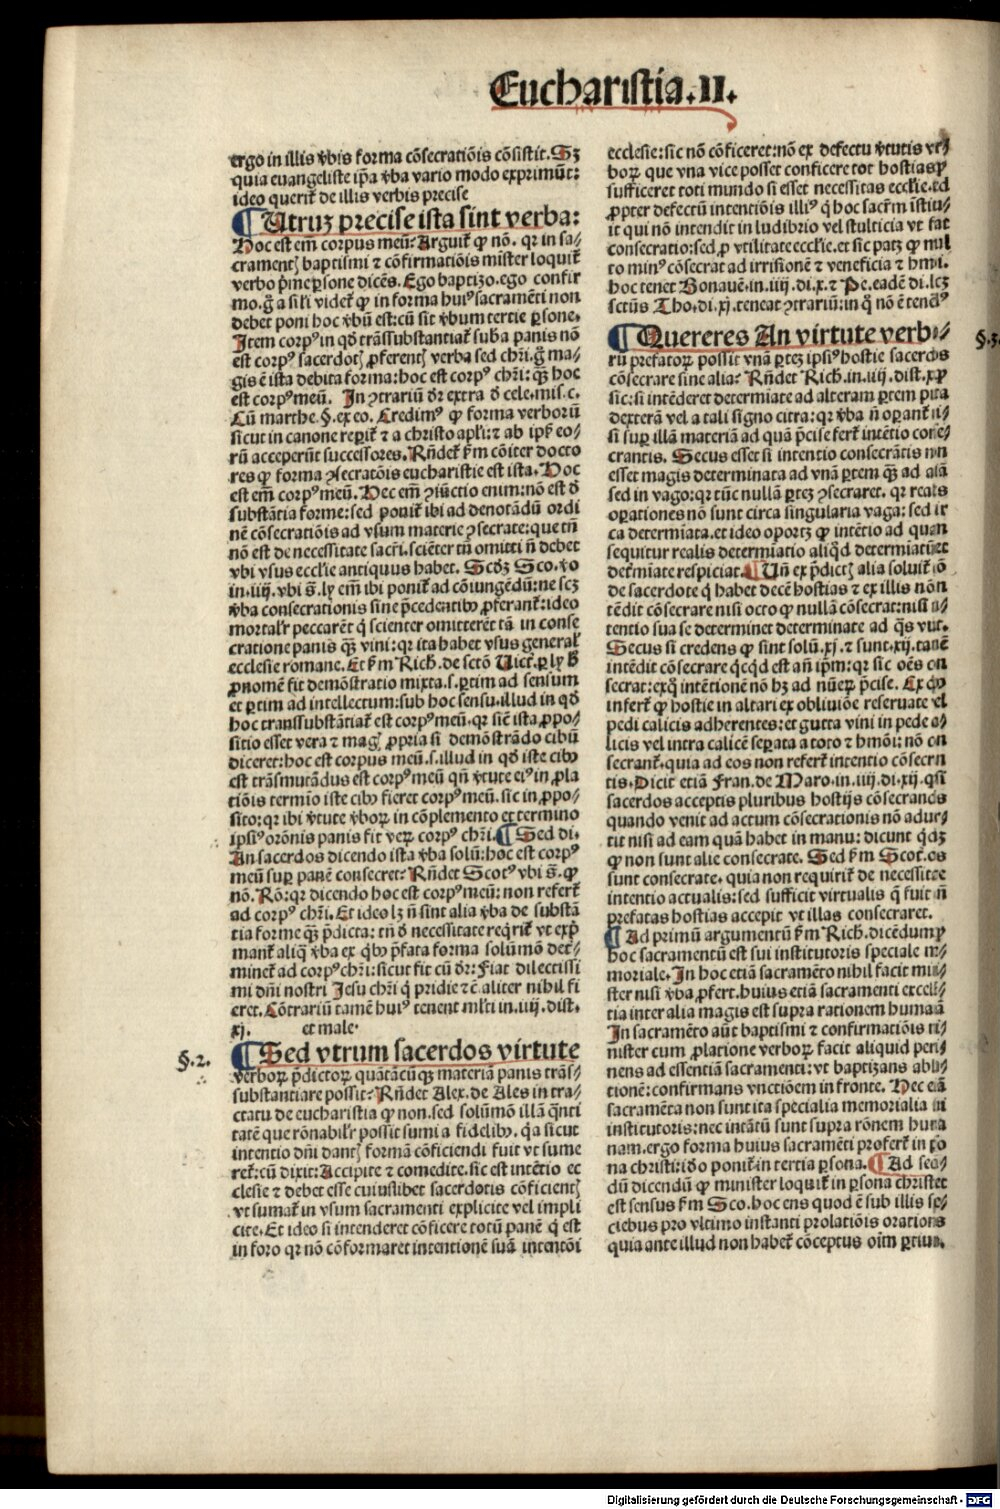 Eucharistia.II.
ergo in illis v̄bis forma cōsecratiōis cōsistit. Sꝫ
quia euangeliste ip̄a v̄ba vario modo exprimūt:
ideo querit̄ de illis verbis precise
¶ Utruꝫ precise ista sint verba:
Hoc est em̄ corpus meū: Arguit̄ ꝙ nō. qꝛ in sa⸗
cramentꝭ baptismi ⁊ cōfirmatiōis mīster loquit̄
verbo p̄me ꝑsone dicēs. Ego baptizo. ego confir
mo. g̊ a sil'i videt̄ ꝙ in forma huiꝰ sacramēti non
debet poni hoc v̄bū est: cū sit v̄bum tertie ꝑsone.
Item corpꝰ in qd̄ trāssubstantiat̄ sub̄a panis nō
est corpꝰ sacerdotꝭ ꝓferentꝭ verba sed chr̄i. g̊ ma⸗
gis ē ista debita forma: hoc est corpꝰ chr̄i: qꝫ̄ hoc
est corpꝰ meū. In ꝯtrariū dr̄ extra d̄ cele. mis. c.
Cū marthe. §. ex eo. Credimꝰ ꝙ forma verborū
sicut in canone reꝑit̄ ⁊ a christo apl'i: ⁊ ab ip̄ꝭ eo⸗
rū acceperūt successores. Rn̄det ẜm cōiter docto
res ꝙ forma ꝯsecratōis eucharistie est ista. Hoc
est em̄ corpꝰ meū. Hec em̄ ꝯiūctio enim: nō est d̄
substātia forme: sed ponit̄ ibi ad denotādū ordi
nē cōsecratiōis ad vsum materie ꝯsecrate: que tn̄
nō est de necessitate sacr̄i. sciēter tn̄ omitti n̄ debet
vbi vsus eccl'ie antiquus habet. Scd̄ꝫ Sco. ꝟo
in. iiij. vbi s̄. ly em̄ ibi ponit̄ ad cōiungēdū: ne scꝫ
v̄ba consecrationis sine p̄cedentibꝰ ꝓferant̄: ideo
mortal'r peccarēt q̇ scienter omitterēt tā in conse
cratione panis qꝫ̄ vini: qꝛ ita habet vsus general'
ecclesie romane. Et ẜm Rich. de sctō Vict̄. ꝑ ly h̄
ꝓnomē fit demōstratio mixta. s. ꝑtim ad sensum
et ꝑtim ad intellectum: sub hoc sensu. illud in qd̄
hoc transsubstātiat̄ est corpꝰ meū. qꝛ sic̄ ista ꝓpo⸗
sitio esset vera ⁊ magꝭ ꝓpria si demōstrādo cibū
diceret: hoc est corpus meū. s. illud in qd̄ iste cibꝰ
est trāsmutādus est corpꝰ meū qn̄ v̄tute eiꝰ in ꝓla
tiōis termīo iste cibꝰ fieret corpꝰ meū. sic in ꝓpo⸗
sito: qꝛ ibi v̄tute v̄boꝝ in cōplemento et termino
ipsiꝰ orōnis panis fit veꝝ corpꝰ chr̄i. ¶ Sed di.
An sacerdos dicendo ista v̄ba solū: hoc est corpꝰ
meū suꝑ panē consecret: Rn̄det Scotꝰ vbi s̄. ꝙ
nō. Rō: qꝛ dicendo hoc est corpꝰ meū: non refert̄
ad corpꝰ chr̄i. Et ideo lꝫ n̄ sint alia v̄ba de substā
tia forme qꝫ̄ p̄dicta: tn̄ d̄ necessitate req̇rit̄ vt exp̄
mant̄ aliq̇ v̄ba ex q̇bꝰ p̄fata forma solūmō det̄⸗
minet̄ ad corpꝰ chr̄i: sicut fit cū dr̄: Fiat dilectissi
mi dn̄i nostri Jesu chr̄i q̇ pridie ⁊cē. aliter nihil fi
eret. Cōtrariū tamē huiꝰ tenent ml'ti in. iiij. dist.
xj. et male.
§.2.
¶ Sed vtrum sacerdos virtute
verboꝝ p̄dictoꝝ quātācūqꝫ materiā panis trās⸗
substantiare possit: Rn̄det Alex. de Ales in tra⸗
ctatu de eucharistia ꝙ non. sed solūmō illā q̄nti
tatē que rōnabil'r possit sumi a fidelibꝰ. q̇a sicut
intentio dn̄i dantꝭ formā cōficiendi fuit vt sume
ret̄: cū dixit: Accipite ⁊ comedite. sic est intētio ec
clesie ⁊ debet esse cuiuslibet sacerdotis cōficientꝭ
vt sumat̄ in vsum sacramenti explicite vel impli
cite. Et ideo si intenderet cōficere totū panē q̇ est
in foro qꝛ nō cōformaret intentionē suā intentōi
ecclesie: sic nō cōficeret: nō ex defectu v̄tutis ver⸗
boꝝ que vna vice posset conficere tot hostias ꝙ
sufficeret toti mundo si esset necessitas eccl'ie. sed
ꝓpter defectū intentiōis illiꝰ q̇ hoc sacr̄m īstitu⸗
it qui nō intendit in ludibriū vel stulticia vt fiat
consecratio: sed ꝓ vtilitate eccl'ie. et sic patꝫ ꝙ mul
to minꝰ cōsecrat ad irrisionē ⁊ veneficia ⁊ hm̄i.
hoc tenet Bonauē. in. iiij. di. x. ⁊ Pe. eadē di. lcꝫ
sctūs Tho. di. xj. teneat ꝯtrariū: in q̊ nō ē tenēdꝰ
¶ Quereres An virtute verbo⸗
§.3.
rū prefatoꝝ possit vnā ꝑteꝫ ipsiꝰ hostie sacerdos
cōsecrare sine alia: Rn̄det Rich. in. iiij. dist. x. ꝙ
sic: si intēderet determiate ad alteram ꝑtem puta
dexterā vel a tali signo citra: qꝛ v̄ba n̄ oꝑant̄ ni⸗
si suꝑ illā materiā ad quā p̄cise fert̄ intētio conse⸗
crantis. Secus esset si intentio consecrātis non
esset magis determinata ad vnā ꝑtem qꝫ̄ ad aliā
sed in vago: qꝛ tūc nullā ꝑteꝫ ꝯsecraret. qꝛ reales
oꝑationes nō sunt circa singularia vaga: sed cir
ca determiata. et ideo oportꝫ ꝙ intētio ad quam
sequitur realis determiatio aliq̇d determiatū et
det̄miate respiciat. ¶ Un̄ ex p̄dictꝭ alia soluit̄ q̄o
de sacerdote q̇ habet decē hostias ⁊ ex illis nō in
tēdit cōsecrare nisi octo ꝙ nullā cōsecrat: nisi in⸗
tentio sua se determinet determinate ad q̄s vult.
Secus si credens ꝙ sint solū. xj. ⁊ sunt. xij. tamē
intēdit cōsecrare q̇cq̇d est añ ip̄m: qꝛ sic oēs con
secrat: ex q̊ intētionē nō hꝫ ad nūeꝝ p̄cise. Ex quo
infert̄ ꝙ hostie in altari ex obliuiōe reseruate vel
pedi calicis adherentes: et gutta vini in pede ca⸗
licis vel intra calicē seꝑata a toto ⁊ hmōi: nō con
secrant̄. quia ad eos non refert̄ intentio cōsecran
tis. Dicit etiā Fran. de Maro. in. iiij. di. xij. qn̄
sacerdos acceptis pluribus hostijs cōsecrandis
quando venit ad actum cōsecrationis nō aduer⸗
tit nisi ad eam quā habet in manu: dicunt q̇dā
ꝙ non sunt alie consecrate. Sed ẜm Scot. oēs
sunt consecrate. quia non requirit̄ de necessitate
intentio actualis: sed sufficit virtualis q̄ fuit qn̄
prefatas hostias accepit vt illas consecraret.
¶ Ad primū argumentū ẜm Rich. dicēdum ꝙ
hoc sacramentū est sui institutoris speciale me⸗
moriale. In hoc etiā sacramēto nihil facit mini⸗
ster nisi v̄ba ꝓfert. huius etiā sacramenti excellē⸗
tia inter alia magis est supra rationem humanā
In sacramēto aūt baptismi ⁊ confirmatiōis mi⸗
nister cum ꝓlatione verboꝝ facit aliquid perti⸗
nens ad essentiā sacramenti: vt baptizans ablu⸗
tionē: confirmans vnctiōem in fronte. Hec etiā
sacramēta non sunt ita specialia memorialia sui
institutoris: nec intātū sunt supra rōnem huma
nam. ergo forma huius sacramēti profert̄ in ꝑso
na christi: ideo ponit̄ in tertia ꝑsona. ¶ Ad secū⸗
dū dicendū ꝙ minister loquit̄ in ꝑsona christi et
est sensus ẜm Sco. hoc ens quod ē sub illis spe⸗
ciebus pro vltimo instanti prolatiōis orationis
quia ante illud non habet̄ cōceptus oīm ꝑtium.
Digitalisierung gefördert durch die Deutsche Forschungsgemeinschaft - DFG